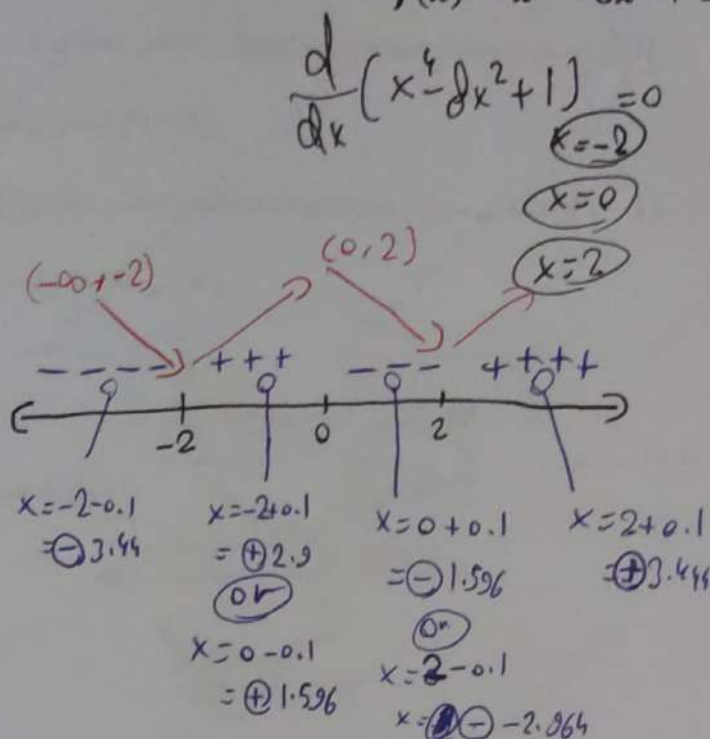 d/dx (x⁴-8x²+1) =0
x=-2
x=0
x=2
(-∞,-2)
(0,2)
- - - - - + + + - - - + + + +
-2 0 2
x=-2-0.1
=⊖3.44
x=-2+0.1
=⊕2.9
or
x=0-0.1
=⊕1.596
x=0+0.1
=⊖1.596
or
x=2-0.1
x=⊖-2.964
x=2+0.1
=⊕3.444